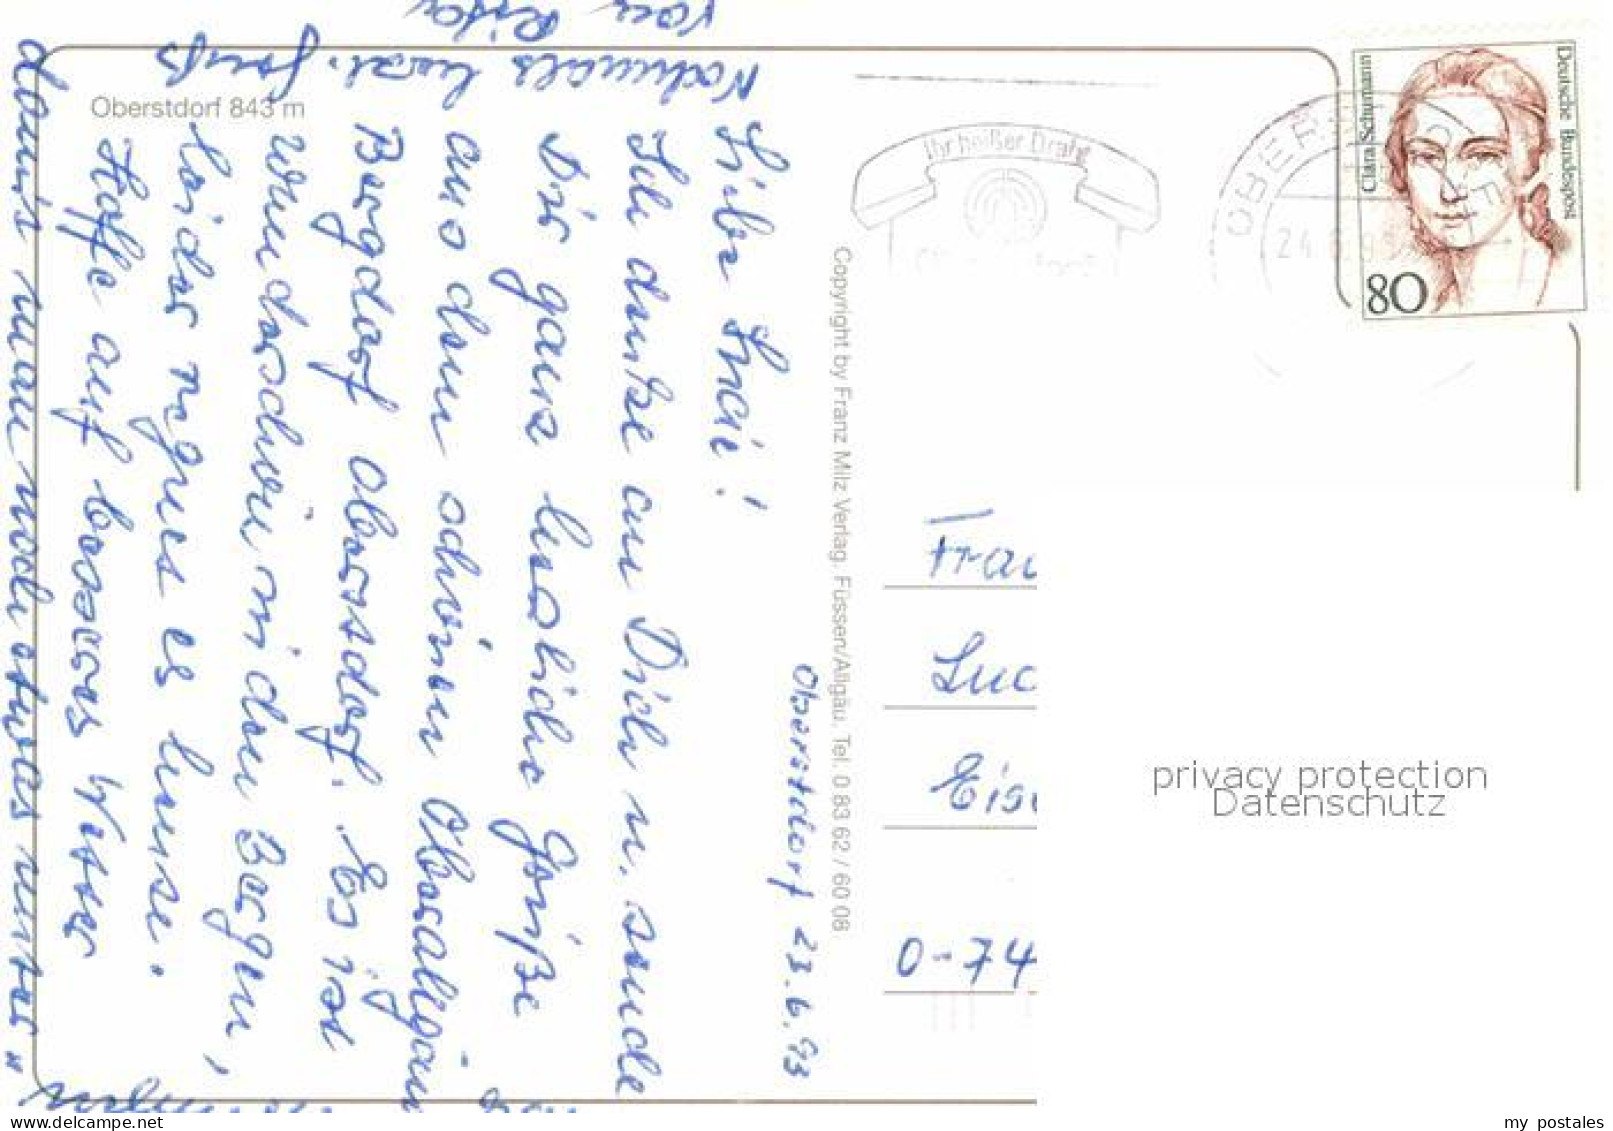 Oberstdorf 843 m
Oberstdorf 23.6.93
Liebe Lucie!
Ich denke an Dich u. sende
Dir ganz herzliche Grüße
aus dem schönen Oberallgäu
Bergdorf Oberstdorf. Es ist
wunderschön in den Bergen,
leider regnet es heute.
Hoffe auf besseres Wetter
damit man noch etwas unter"
Nochmals herzl. Gruß
von
Copyright by Franz Milz Verlag, Füssen/Allgäu, Tel. 0 83 62 / 60 08
Ihr heißer Draht
24
Clara Schumann
Deutsche Bundespost
80
Frau
Luc
Eise
O-74
privacy protection
Datenschutz
delcampe.net
my_postales